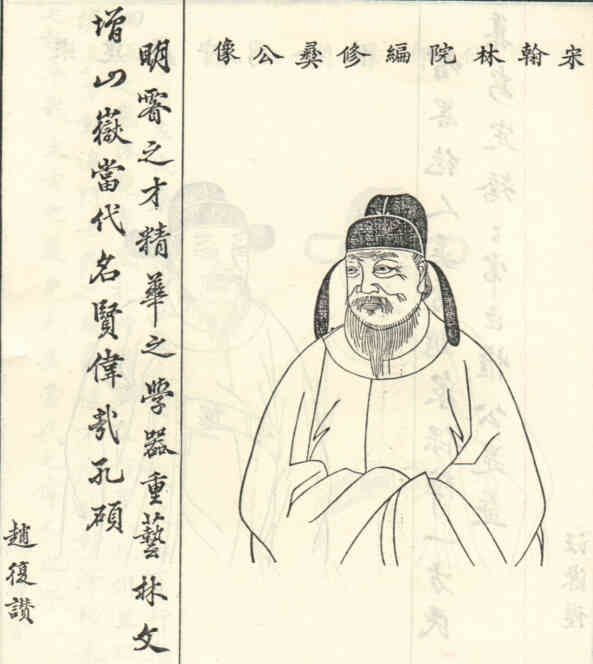 宋翰林院編修彝公像
明睿之才精華之學器重藝林文
增山嶽當代名賢偉哉孔碩
趙復讚